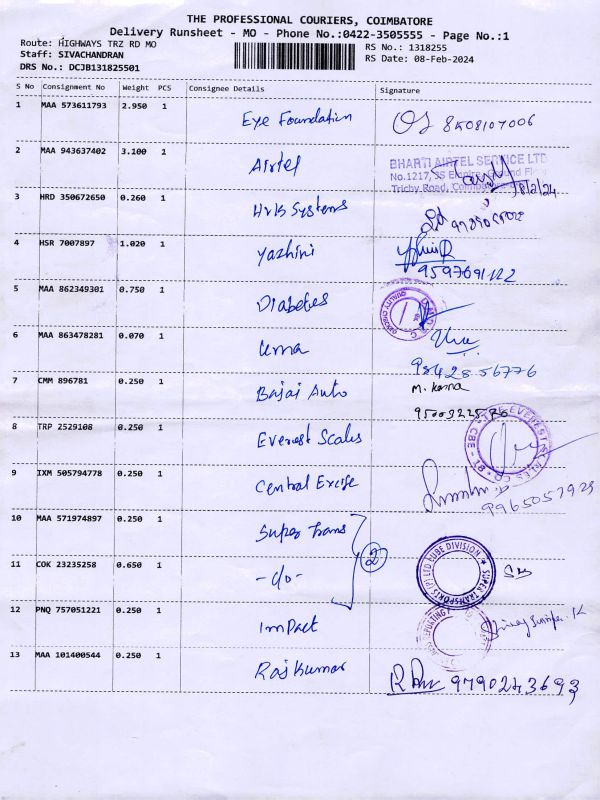 THE PROFESSIONAL COURIERS, COIMBATORE
Delivery Runsheet - MO - Phone No.:0422-3505555 - Page No.:1
Route: HIGHWAYS TRZ RD MO
RS No.: 1318255
Staff: SIVACHANDRAN
RS Date: 08-Feb-2024
DRS No.: DCJB131825501
S No Consignment No Weight PCS Consignee Details Signature
1 MAA 573611793 2.950 1 Eye Foundation 8508107006
2 MAA 943637402 3.100 1 Airtel
BHARTI AIRTEL SERVICE LTD
No.1217, JS
Trichy Road, Coimbatore
8/2/24
3 HRD 350672650 0.260 1 HrK Systems
4 HSR 7007897 1.020 1 Yazhini
5 MAA 862349301 0.750 1 Diabetes
6 MAA 863478281 0.070 1 Uma
98428 56776
7 CMM 896781 0.250 1 Bajaj Auto
8 TRP 2529108 0.250 1 Everest Scales
9 IXM 505794778 0.250 1 Central Excise
9965057929
10 MAA 571974897 0.250 1 Super Trans
2
11 COK 23235258 0.650 1 -do-
12 PNQ 757051221 0.250 1 Impact
13 MAA 101400544 0.250 1 Rajkumar 9790243693